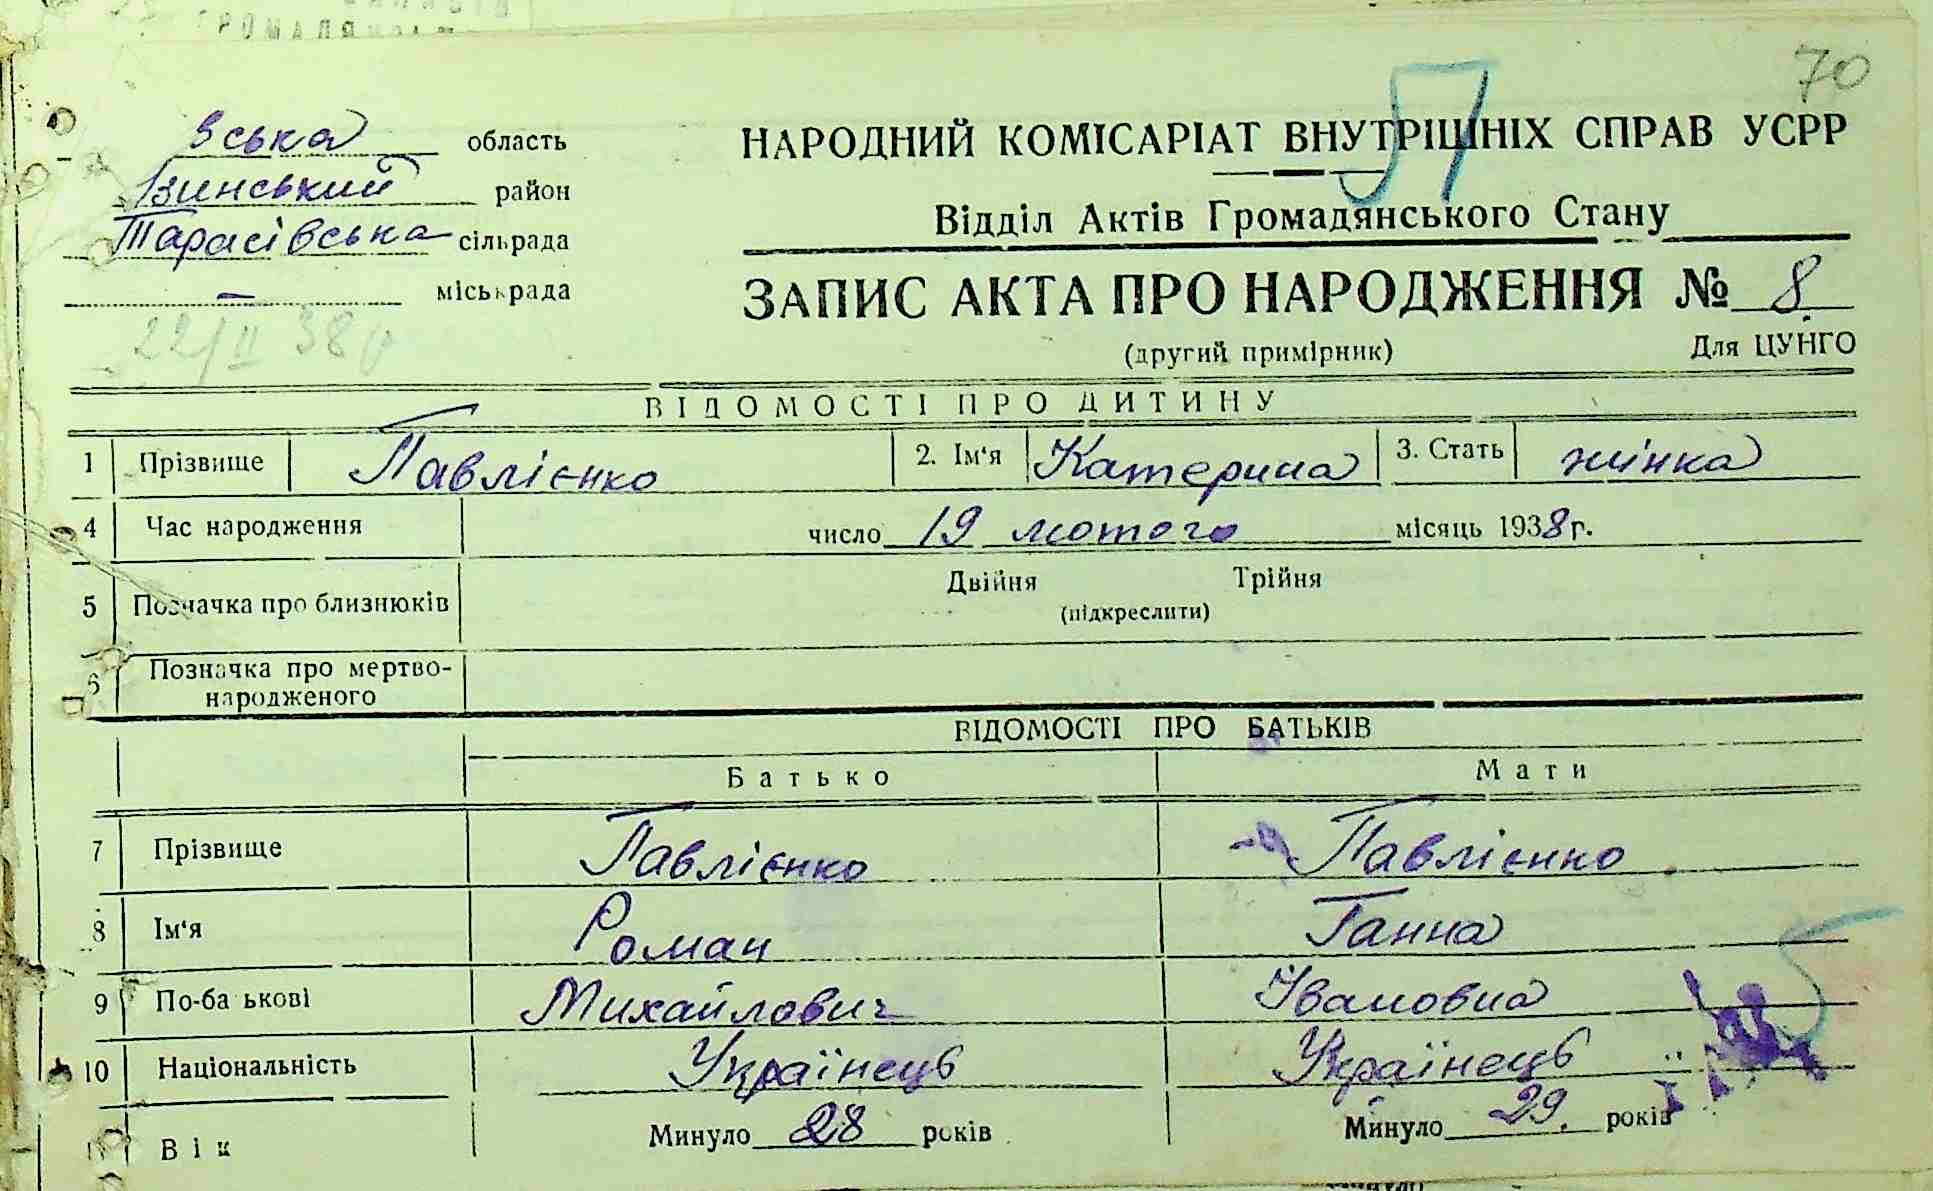 70
ська область
зинський район
Тарасівська сільрада
— міськрада
22/II 38 р
НАРОДНИЙ КОМІСАРІАТ ВНУТРІШНІХ СПРАВ УСРР
Відділ Актів Громадянського Стану
ЗАПИС АКТА ПРО НАРОДЖЕННЯ № 8
(другий примірник) Для ЦУНГО
ВІДОМОСТІ ПРО ДИТИНУ
1 Прізвище Павлієнко 2. Ім'я Катерина 3. Стать жінка
4 Час народження число 19 лютого місяць 1938 г.
5 Позначка про близнюків Двійня Трійня
(підкреслити)
6 Позначка про мертво-
народженого
ВІДОМОСТІ ПРО БАТЬКІВ
Батько Мати
7 Прізвище Павлієнко Павлієнко
8 Ім'я Роман Ганна
9 По-ба ькові Михайлович Івановна
10 Національність Українець Українець
11 Вік Минуло 28 років Минуло 29. років